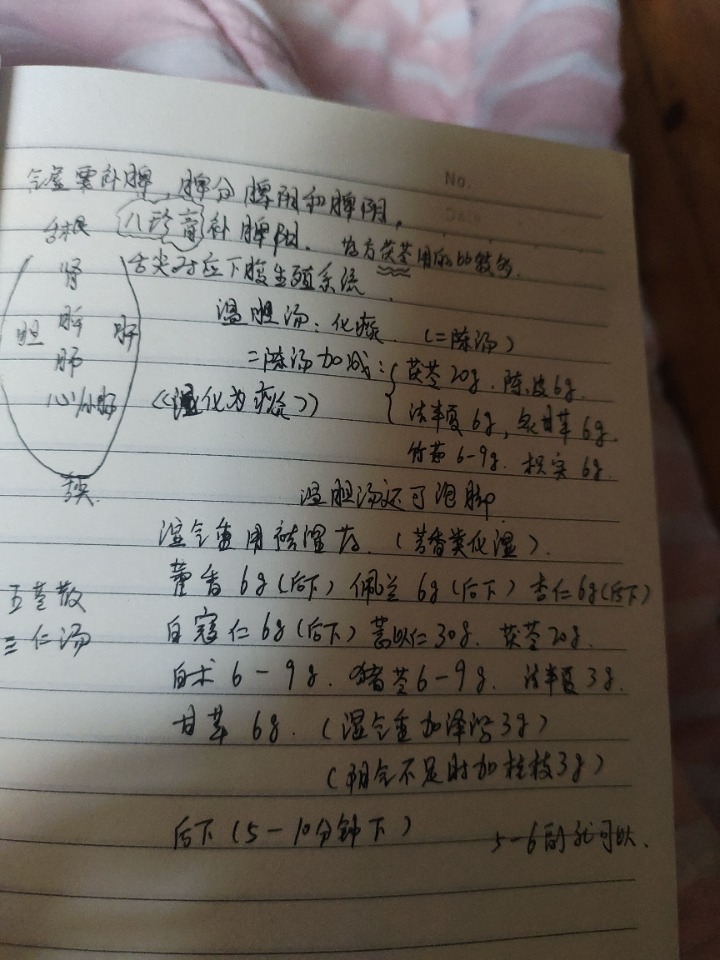 No.
Date
气虚要补脾，脾分脾阴和脾阳，
舌根 八珍膏补脾阳. 

药方茯苓用的比较多.
肾 舌尖对应下腹生殖系统.
胆 脾 肝 温胆汤：化痰. (二陈汤)
肺 二陈汤加减：茯苓20g. 陈皮6g.
心小肠 《湿化为痰饮》 法半夏6g, 炙甘草6g.
竹茹6-9g. 枳实6g.
温胆汤还可泡脚
湿气重用祛湿药. (芳香类化湿).
五苓散 藿香6g(后下) 佩兰6g(后下) 杏仁6g(后下)
三仁汤 白寇仁6g(后下) 薏以仁30g. 茯苓20g.
白术6-9g. 猪苓6-9g. 法半夏3g.
甘草6g. (湿气重加泽泻3g)
(阳气不足时加桂枝3g)
后下(5-10分钟下) 5-6副就可以.